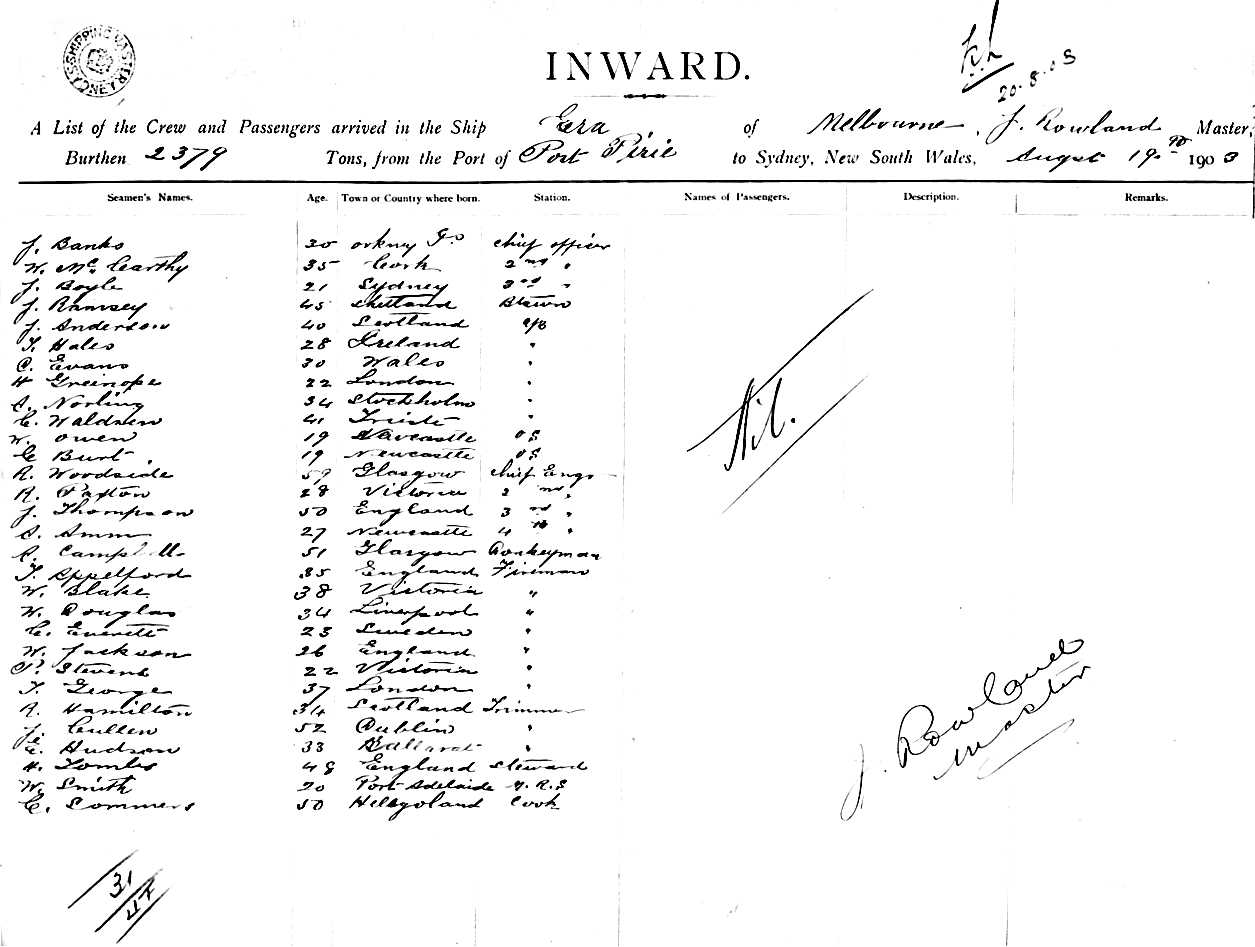 SHIPPING MASTER SYDNEY
INWARD.
20.8.03
A List of the Crew and Passengers arrived in the Ship Era of Melbourne, J. Rowland Master,
Burthen 2379 Tons, from the Port of Port Pirie to Sydney, New South Wales, August 19th 1903
Seamen's Names. Age. Town or Country where born. Station. Names of Passengers. Description. Remarks.
J. Banks 30 orkny Is chief officer
W. McCarthy 35 Cork 2nd "
J. Boyle 21 Sydney 3rd "
J. Ramsey 45 Shetland Bsawn
J. Anderson 40 Scotland a/b
T. Hales 28 Ireland "
C. Evans 30 Wales "
H Greenope 22 London "
A. Norling 34 Stockholm "
C. Waldren 41 Trieste "
W. Owen 19 Newcastle OS
C Burt. 19 Newcastle OS
R. Woodside 59 Glasgow chief Engr
R. Paxton 28 Victoria 2nd "
J. Thompson 50 England 3rd "
A. Amm 27 Newcastle 4th "
A. Campbell 51 Glasgow Donkeyman
T. Appelford 35 England Fireman
W. Blake 38 Victoria "
W. Douglas 34 Liverpool "
C. Everett 23 Sweden "
W. Jackson 26 England "
P. Stevens 22 Victoria "
T. George 37 London "
R. Hamilton 34 Scotland Trimmer
J. Cullen 52 Dublin "
E. Hudson 33 Ballarat "
H. Tombs 48 England Steward
W. Smith 20 Port Adelaide M.R.S
C. Sommers 50 Heligoland Cook
Nil.
J. Rowland
Master
31
47